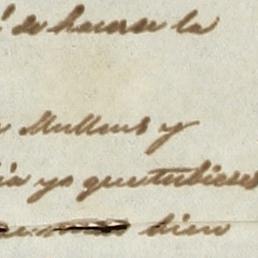 de hacerse la
Mullens y
ia yo que tubiese
bien